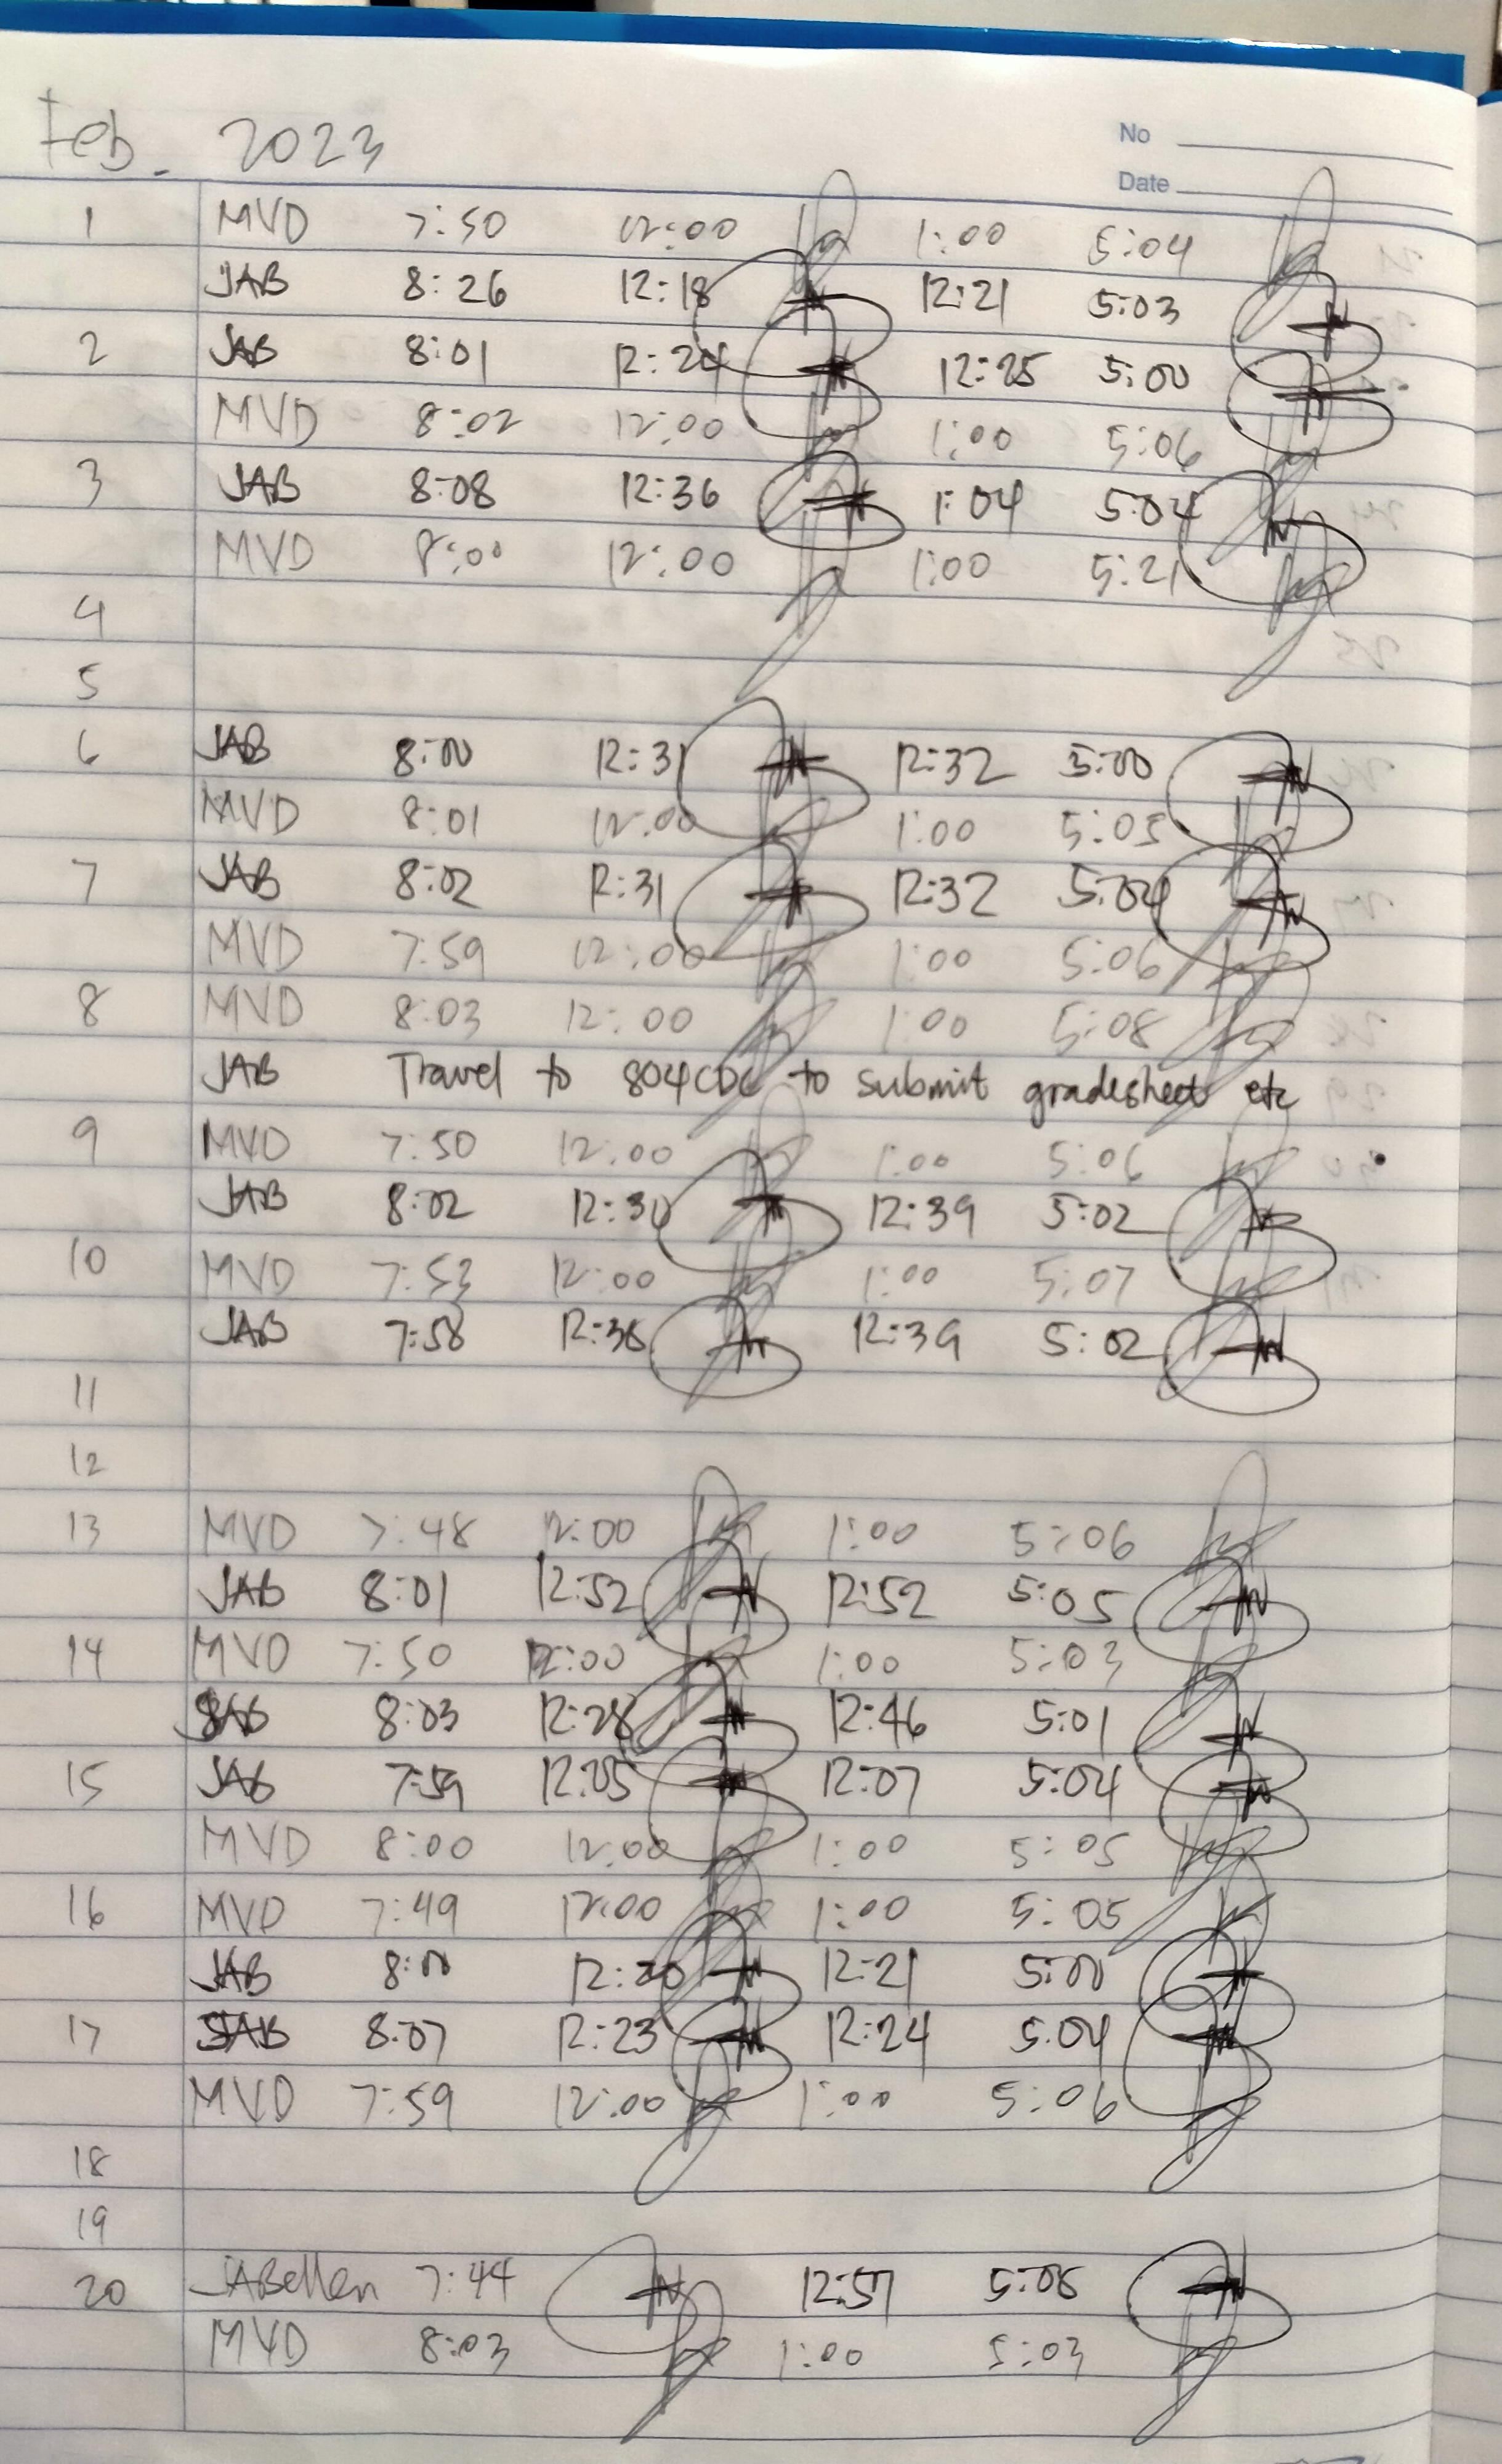 Feb. 2023
No
Date
1 MVD 7:50 12:00 1:00 5:04
JAB 8:26 12:18 12:21 5:03
2 JAB 8:01 12:24 12:25 5:00
MVD 8:02 12:00 1:00 5:06
3 JAB 8:08 12:36 1:04 5:04
MVD 8:00 12:00 1:00 5:21
4
5
6 JAB 8:00 12:31 12:32 5:00
MVD 8:01 12:00 1:00 5:05
7 JAB 8:02 12:31 12:32 5:04
MVD 7:59 12:00 1:00 5:06
8 MVD 8:03 12:00 1:00 5:08
JAB Travel to 804CDC to submit gradesheet etc
9 MVD 7:50 12:00 1:00 5:06
JAB 8:02 12:30 12:39 5:02
10 MVD 7:53 12:00 1:00 5:07
JAB 7:58 12:38 12:39 5:02
11
12
13 MVD 7:48 12:00 1:00 5:06
JAB 8:01 12:52 12:52 5:05
14 MVD 7:50 12:00 1:00 5:03
JAB 8:03 12:28 12:46 5:01
15 JAB 7:59 12:05 12:07 5:04
MVD 8:00 12:00 1:00 5:05
16 MVD 7:49 12:00 1:00 5:05
JAB 8:00 12:20 12:21 5:00
17 JAB 8:07 12:23 12:24 5:04
MVD 7:59 12:00 1:00 5:06
18
19
20 JABellen 7:44 12:57 5:05
MVD 8:03 1:00 5:03